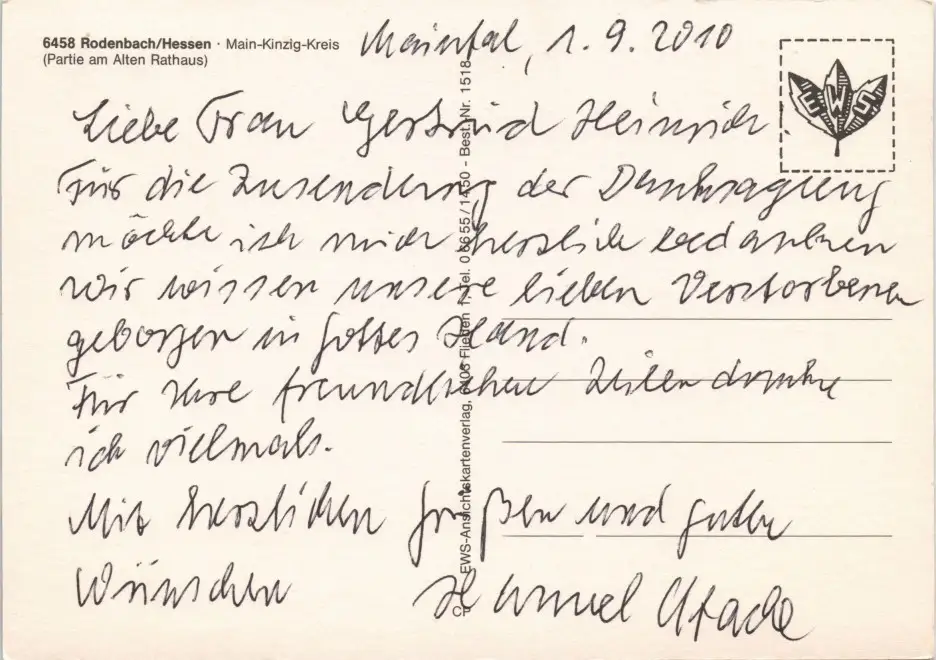 6458 Rodenbach/Hessen · Main-Kinzig-Kreis
(Partie am Alten Rathaus)
Maintal, 1. 9. 2010
EWS
Liebe Frau Gertrud Heinrich!
Für die Zusendung der Danksagung
möchte ich mich herzlich bedanken
wir wissen unsere lieben Verstorbenen
geborgen in Gottes Hand.
Für Ihre freundlichen Zeilen danke
ich vielmals.
Mit herzlichen Grüßen und guten
Wünschen
EWS-Ansichtskartenverlag, 6405 Flieden 1, Tel. 0 66 55 / 14 50 - Best. Nr. 1518